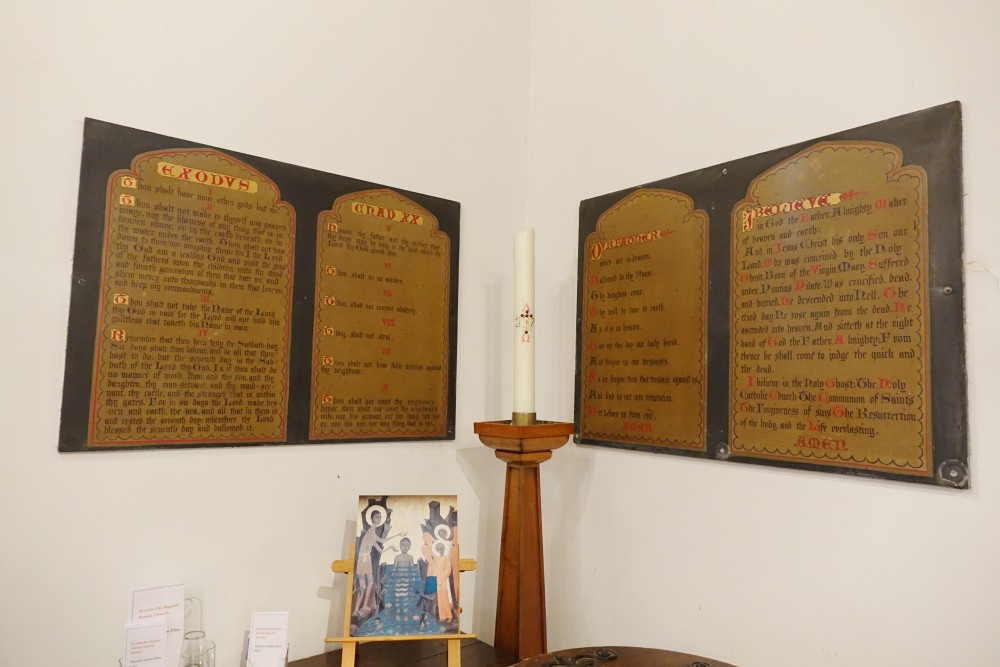 EXODVS
I
Thou shalt have none other gods but me
II
Thou shalt not make to thyself any graven
image, nor the likeness of any thing that is in
heaven above, or in the earth beneath, or in
the water under the earth. Thou shalt not bow
down to them, nor worship them: for I the Lord
thy God am a jealous God, and visit the sins
of the fathers upon the children, unto the third
and fourth generation of them that hate me, and
shew mercy unto thousands in them that love me
and keep my commandments.
III
Thou shalt not take the Name of the Lord
thy God in vain: for the Lord will not hold him
guiltless that taketh his Name in vain.
IV
Remember that thou keep holy the Sabbath-day.
Six days shalt thou labour, and do all that thou
hast to do; but the seventh day is the Sab-
bath of the Lord thy God. In it thou shalt do
no manner of work, thou, and thy son, and thy
daughter, thy man-servant, and thy maid-ser-
vant, thy cattle, and the stranger that is within
thy gates. For in six days the Lord made hea-
ven and earth, the sea, and all that in them is
and rested the seventh day: wherefore the Lord
blessed the seventh day and hallowed it.
CHAP XX
V
Honour thy father and thy mother that
thy days may be long in the land which the
Lord thy God giveth thee.
VI
Thou shalt do no murder.
VII
Thou shalt not commit adultery.
VIII
Thou shalt not steal.
IX
Thou shalt not bear false witness against
thy neighbour.
X
Thou shalt not covet thy neighbour's
house, thou shalt not covet thy neighbour's
wife nor his servant, nor his maid, nor his
ox, nor his ass, nor any thing that is his.
OUR FATHER
which art in heaven,
Hallowed be thy Name.
Thy kingdom come.
Thy will be done in earth,
As it is in heaven.
Give me this day our daily bread.
And forgive us our trespasses,
As we forgive them that trespass against us.
And lead us not into temptation,
But deliver us from evil.
AMEN
I BELIEVE
in God the Father Almighty Maker
of heaven and earth:
And in Jesus Christ his only Son our
Lord, Who was conceived by the Holy
Ghost, Born of the Virgin Mary, Suffered
under Pontius Pilate, Was crucified, dead,
and buried, He descended into Hell, The
third day He rose again from the dead, He
ascended into heaven, And sitteth at the right
hand of God the Father Almighty; From
thence he shall come to judge the quick and
the dead.
I believe in the Holy Ghost; The Holy
Catholic Church; The Communion of Saints
The Forgiveness of sins; The Resurrection
of the body, and the Life everlasting.
AMEN.